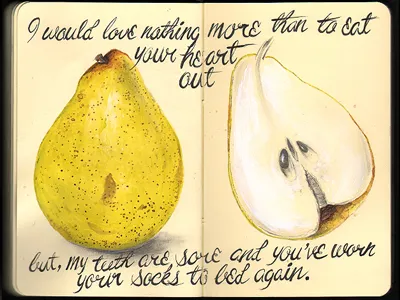 I would love nothing more than to eat
your heart
out
but, my teeth are sore and you've worn
your socks to bed again.